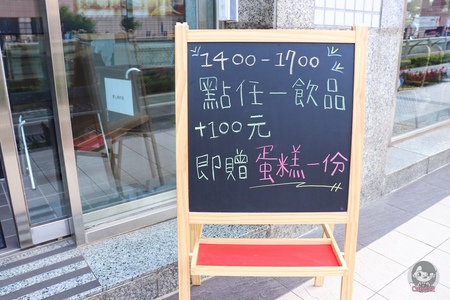 1400-1700
點任一飲品
+100元
即贈 蛋糕一份